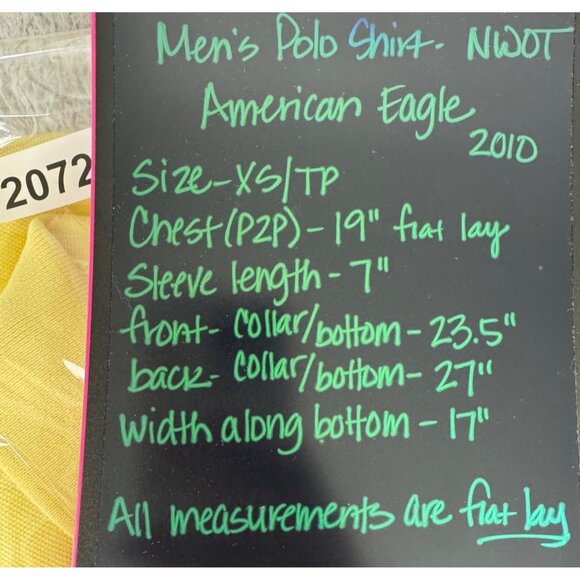 Men's Polo Shirt - NWOT
American Eagle
2010
2072
Size - XS/TP
Chest (P2P) - 19" flat lay
Sleeve length - 7"
front - Collar/bottom - 23.5"
back - Collar/bottom - 27"
Width along bottom - 17"
All measurements are flat lay